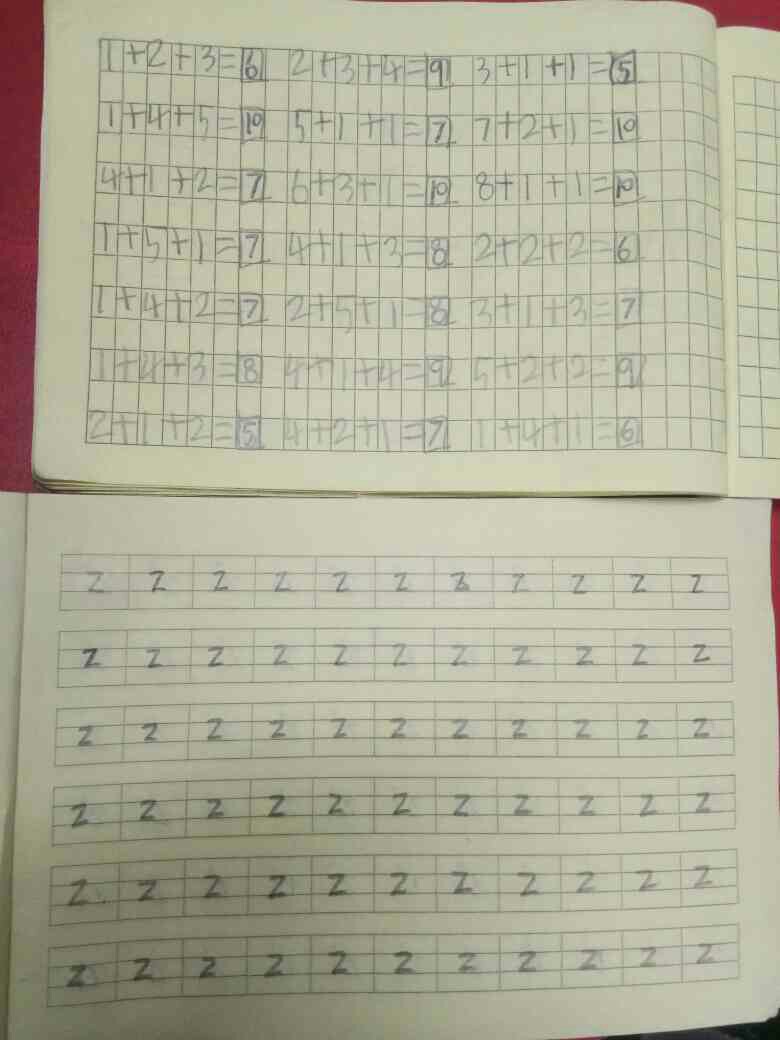 1+2+3=6 2+3+4=9 3+1+1=5
1+4+5=10 5+1+1=7 7+2+1=10
4+1+2=7 6+3+1=10 8+1+1=10
1+5+1=7 4+1+3=8 2+2+2=6
1+4+2=7 2+5+1=8 3+1+3=7
1+4+3=8 4+1+4=9 5+2+2=9
2+1+2=5 4+2+1=7 1+4+1=6
z z z z z z z z z z z
z z z z z z z z z z z
z z z z z z z z z z z
z z z z z z z z z z z
z z z z z z z z z z z
z z z z z z z z z z z